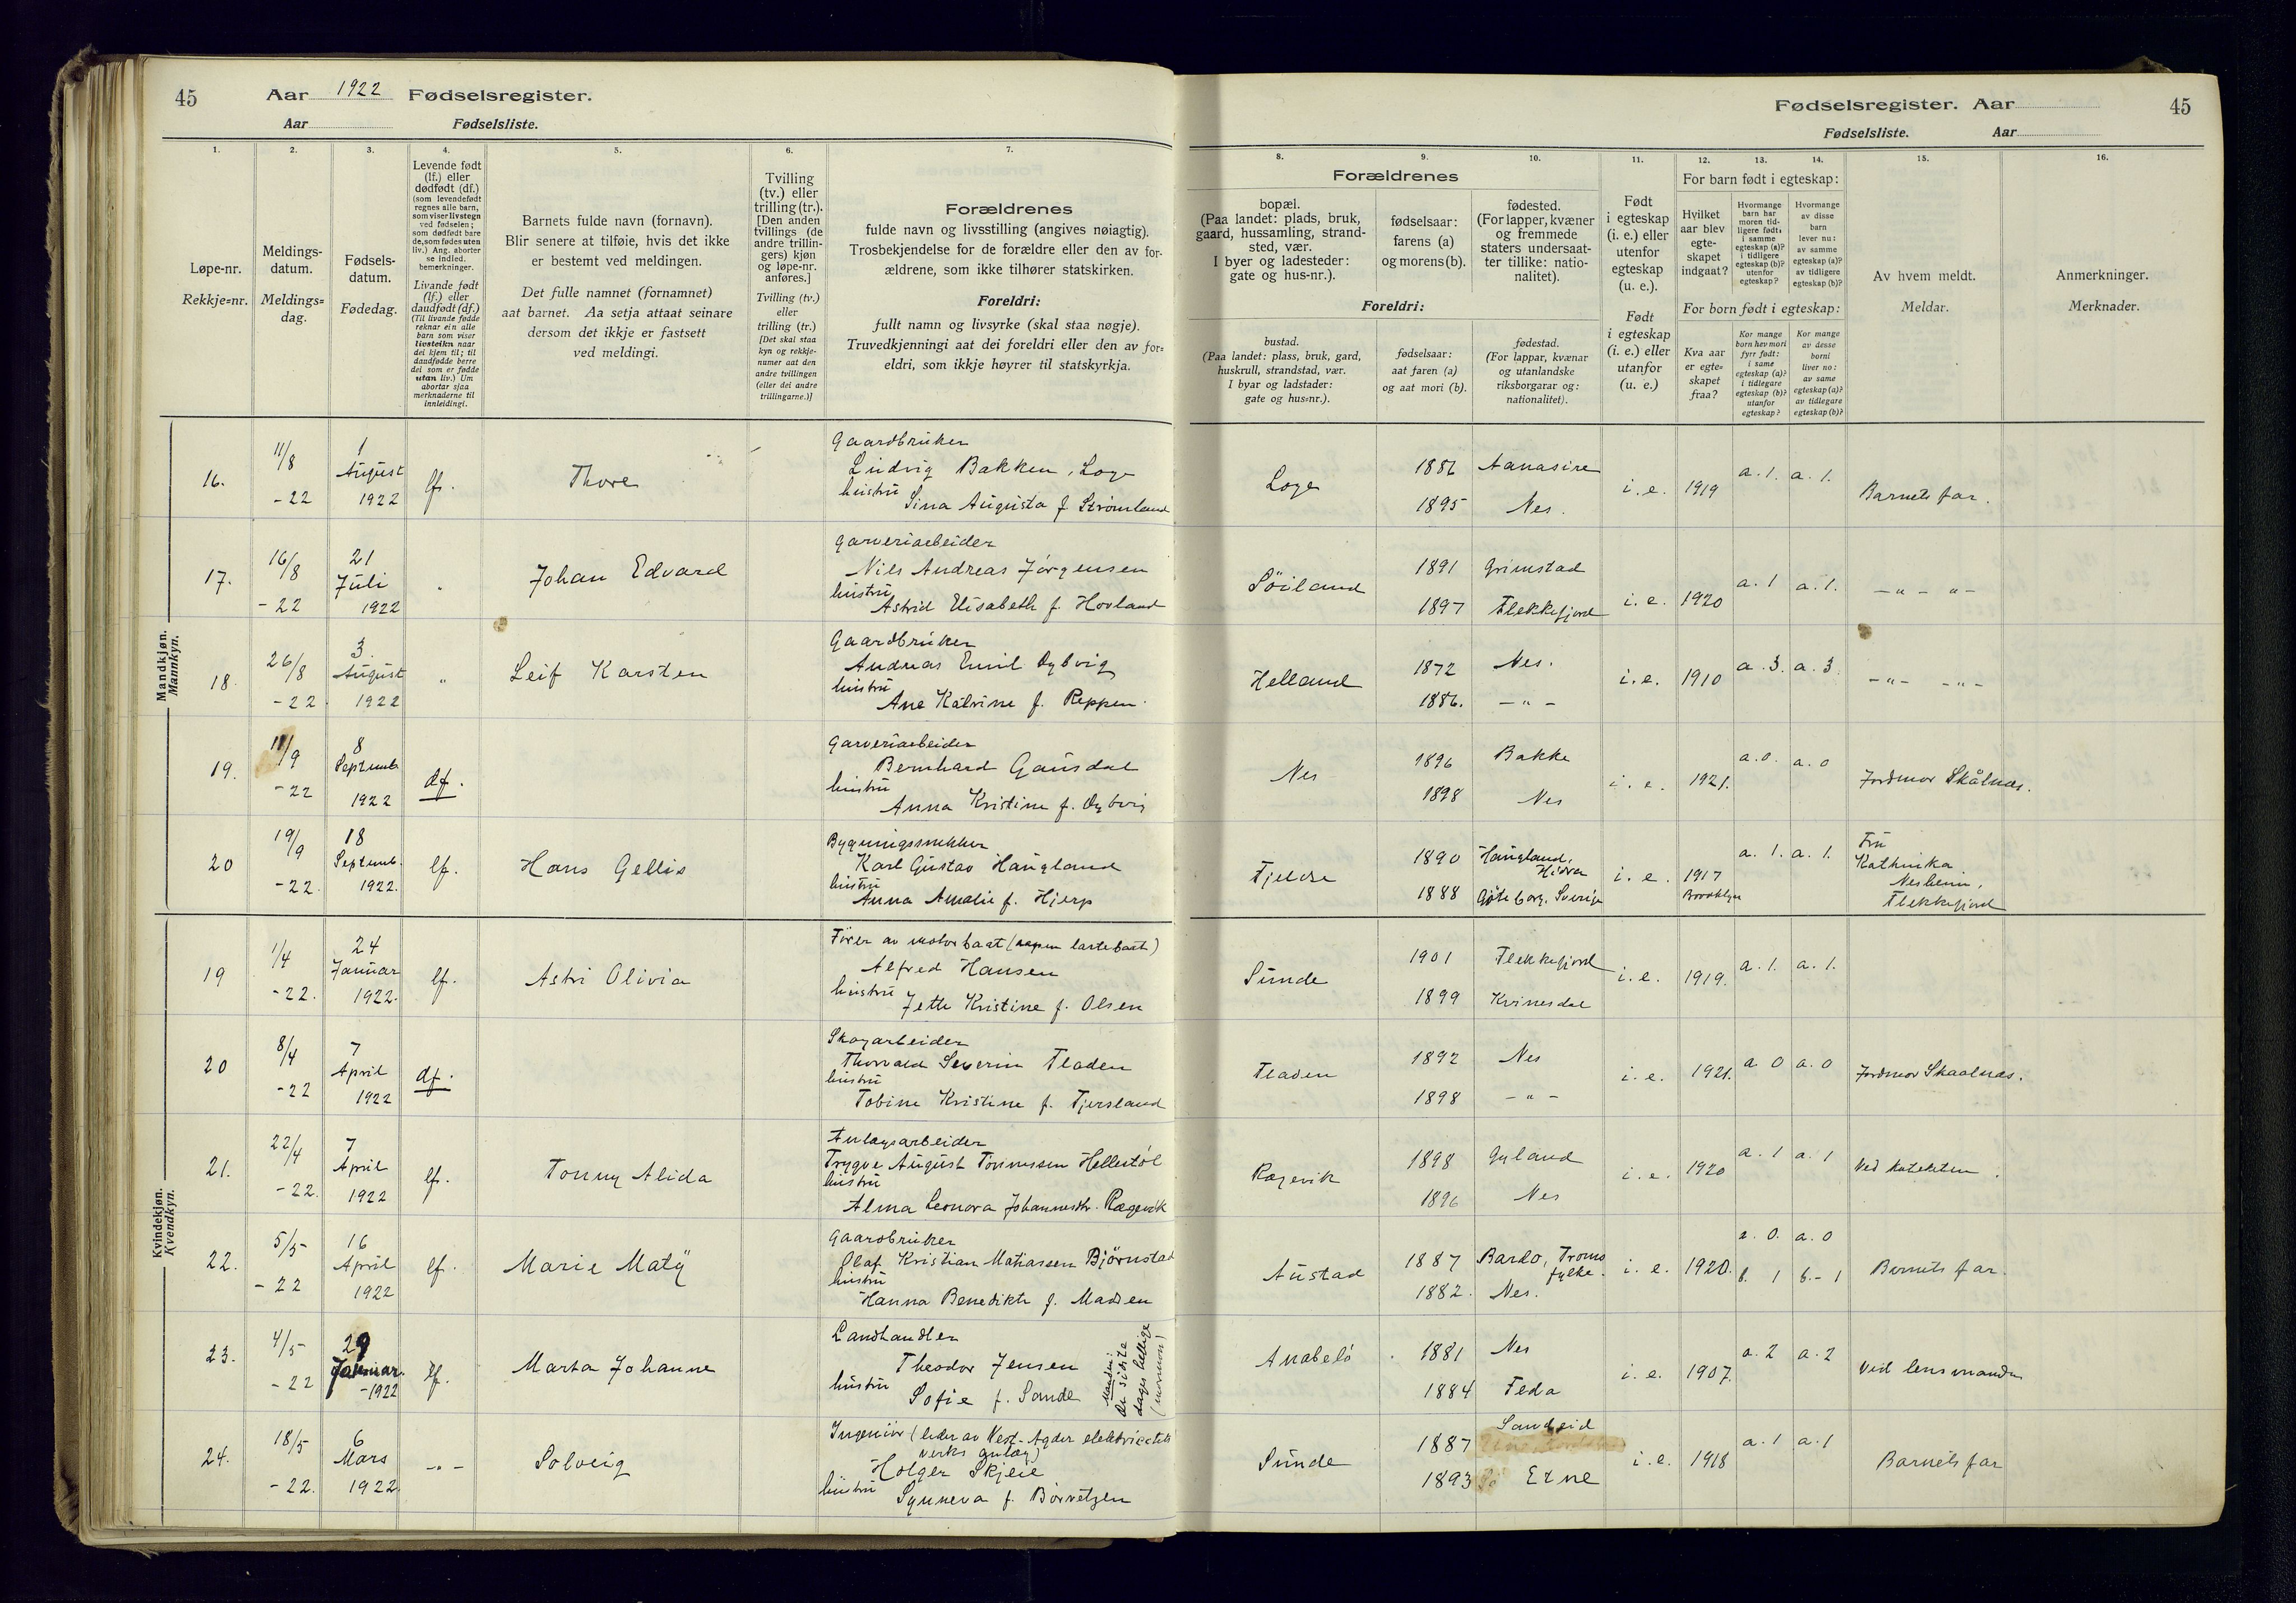 45
Aar 1922 Fødselsregister.
Aar Fødselsliste.
1.
2.
3.
4.
5.
6.
7.
Løpe-nr.
Rekkje=nr.
Meldings-
datum.
Meldings=
dag.
Fødsels-
datum.
Fødedag.
Levende født
(lf.) eller
dødfødt (df.)
(som levendefødt
regnes alle barn,
som viser livstegn
ved fødselen;
som dødfødt bare
de, som fødes uten
liv.) Ang. aborter
se indled.
bemerkninger.
Livande født
(lf.) eller
daudfødt (df.)
(Til livande fødde
reknar ein alle
barn som viser
livsteikn naar
dei kjem til; til
daudfødde berre
dei som er fødde
utan liv.) Um
abortar sjaa
merknaderne til
innleidingi.
Barnets fulde navn (fornavn).
Blir senere at tilføie, hvis det ikke
er bestemt ved meldingen.
Det fulle namnet (fornamnet)
aat barnet. Aa setja attaat seinare
dersom det ikkje er fastsett
ved meldingi.
Tvilling
(tv.) eller
trilling (tr.).
[Den anden
tvillings (de
andre trillin-
gers) kjøn
og løpe-nr.
anføres.]
Tvilling (tv.)
eller
trilling (tr.)
[Det skal staa
kyn og rekkje-
numer aat den
andre tvillingen
(eller dei andre
trillingarne.)]
Forældrenes
fulde navn og livsstilling (angives nøiagtig).
Trosbekjendelse for de forældre eller den av for-
ældrene, som ikke tilhører statskirken.
Foreldri:
fullt namn og livsyrke (skal staa nøgje).
Truvedkjenningi aat dei foreldri eller den av for=
eldri, som ikkje høyrer til statskyrkja.
Fødselsregister. Aar
45
Fødselsliste. Aar
8.
9.
10.
11.
12.
13.
14.
15.
16.
Forældrenes
bopæl.
(Paa landet: plads, bruk,
gaard, hussamling, strand-
sted, vær.
I byer og ladesteder:
gate og hus-nr.).
fødselsaar:
farens (a)
og morens (b).
fødested.
(For lapper, kvæner
og fremmede
staters undersaat-
ter tillike: natio-
nalitet).
Foreldri:
bustad.
(Paa landet: plass, bruk, gard,
huskrull, strandstad, vær.
I byar og ladstader:
gate og hus=nr.).
fødselsaar:
aat faren (a)
og aat mori (b).
fødestad.
(For lappar, kvænar
og utanlandske
riksborgarar og:
nationalitet).
Født
i egteskap
(i. e.) eller
utenfor
egteskap
(u. e.).
Født
i egteskap
(i. e.) eller
utanfor
(u. e.)
For barn født i egteskap:
Hvilket
aar blev
egte-
skapet
indgaat?
Hvormange
barn har
moren tid-
ligere født:
i samme
egteskap (a)?
i tidligere
egteskap (b)?
utenfor
egteskap?
Hvormange
av disse
barn
lever nu:
av samme
egteskap (a)?
av tidligere
egteskap (b)?
For born født i egteskap:
Kva aar
er egte=
skapet
fraa?
Kor mange
born hev mori
fyrr født:
i same
egteskap (a)?
i tidlegare
egteskap (b)?
utanfor
egteskap?
Kor mange
av desse
borni
liver no:
av same
egteskap (a)?
av tidlegare
egteskap (b)?
Av hvem meldt.
Meldar.
Anmerkninger.
Merknader.
Mandkjøn.
Mannkyn.
16. 11/8 -22 1 August 1922 lf. Thore
Gaardbruker
Ludvig Bakken, Loge
hustru
Sina Augusta f. Strømland
Loge 1886 Aanasira i. e. 1919 a. 1. a. 1. Barnets far.
1895 Nes.
17. 16/8 -22 21 Juli 1922 " Johan Edvard
Garveriarbeider
Nils Andreas Jørgensen
hustru
Astrid Elisabeth f. Hovland
Söiland 1891 Grimstad i. e. 1920 a. 1 a. 1. -"- "-
1897 Flekkefjord
18. 26/8 -22 3. August 1922 " Leif Karsten
Gaardbruker
Andreas Emil Dybvig
hustru
Ane Katrine f. Reppen
Helland 1872 Nes. i. e. 1910 a. 3. a. 3 -"- -"-
1886. -"-
19. 11/9 -22 8 Septemb. 1922 df.
Garveriarbeider
Bernhard Gausdal
hustru
Anna Kristine f. Dybvig
Nes 1896 Bakke i. e. 1921. a. 0. a. 0 Jordmor Skålnæs.
1898 Nes
20 19/9 -22. 18 Septemb. 1922. lf. Hans Gellis
Bygningssnekker
Karl Gustav Haugland
hustru
Anna Amalie f. Hjerp
Fjeldse 1890 Haugland, Hidra i. e. 1917 Brooklyn a. 1. a. 1.
1888 Göteborg. Sverige
Fru
Kathinka
Nesheim,
Flekkefjord
Kvindekjøn.
Kvendkyn.
19 1/4 -22. 24 Januar 1922. lf. Astri Olivia
Fører av motorbaat (aapen lastebaat)
Alfred Hansen
hustru
Jette Kristine f. Olsen
Sunde 1901 Flekkefjord i. e. 1919. a. 1. a. 1.
1899 Kvinesdal
20 8/4 -22 7 April 1922 df.
Skogarbeider
Thorvald Severin Fladen
hustru
Tobine Kristine f. Fjersland
Fladen 1892 Nes i. e. 1921. a. 0 a. 0 Jordmor Skaalnæs.
1898 -"-
21. 22/4 -22. 7 April 1922 lf. Tonny Alida
Anlægsarbeider
Trygve August Tønnessen Hellestøl
hustru
Alma Leonora Johannesdtr. Rægevik
Rægevik 1898 Gyland i. e. 1920 a. 1 a. 1 Ved kateketen.
1896 Nes
22. 5/5 -22 16 April 1922 lf. Marie Maty
Gaardbruker
Olaf Kristian Matiassen Björnstad
hustru
Hanna Benedikte f. Madsen
Austad 1887 Bardo, Troms fylke. i. e. 1920. a. 0. a. 0 Barnets far.
1882. Nes. b. 1 b. - 1
23. 4/5 -22 29 Januar -1922 lf. Marta Johanne
Landhandler
Theodor Jensen
hustru
Sofie f. Sande
Manden:
De sidste
dages hellige
(mormon)
Anabelø 1881 Nes i. e. 1907. a. 2 a. 2 ved lensmanden
1884 Feda
24. 18/5 -22. 6 Mars 1922. -"- Solveig
Ingeniør (leder av Vest-Agder elektricitets
verks anlæg)
Holger Skjeie
hustru
Synneva f. Börretzen
Sunde 1887 Sandeid i. e. 1918 a. 1 a. 1 Barnets far
1893 Etne